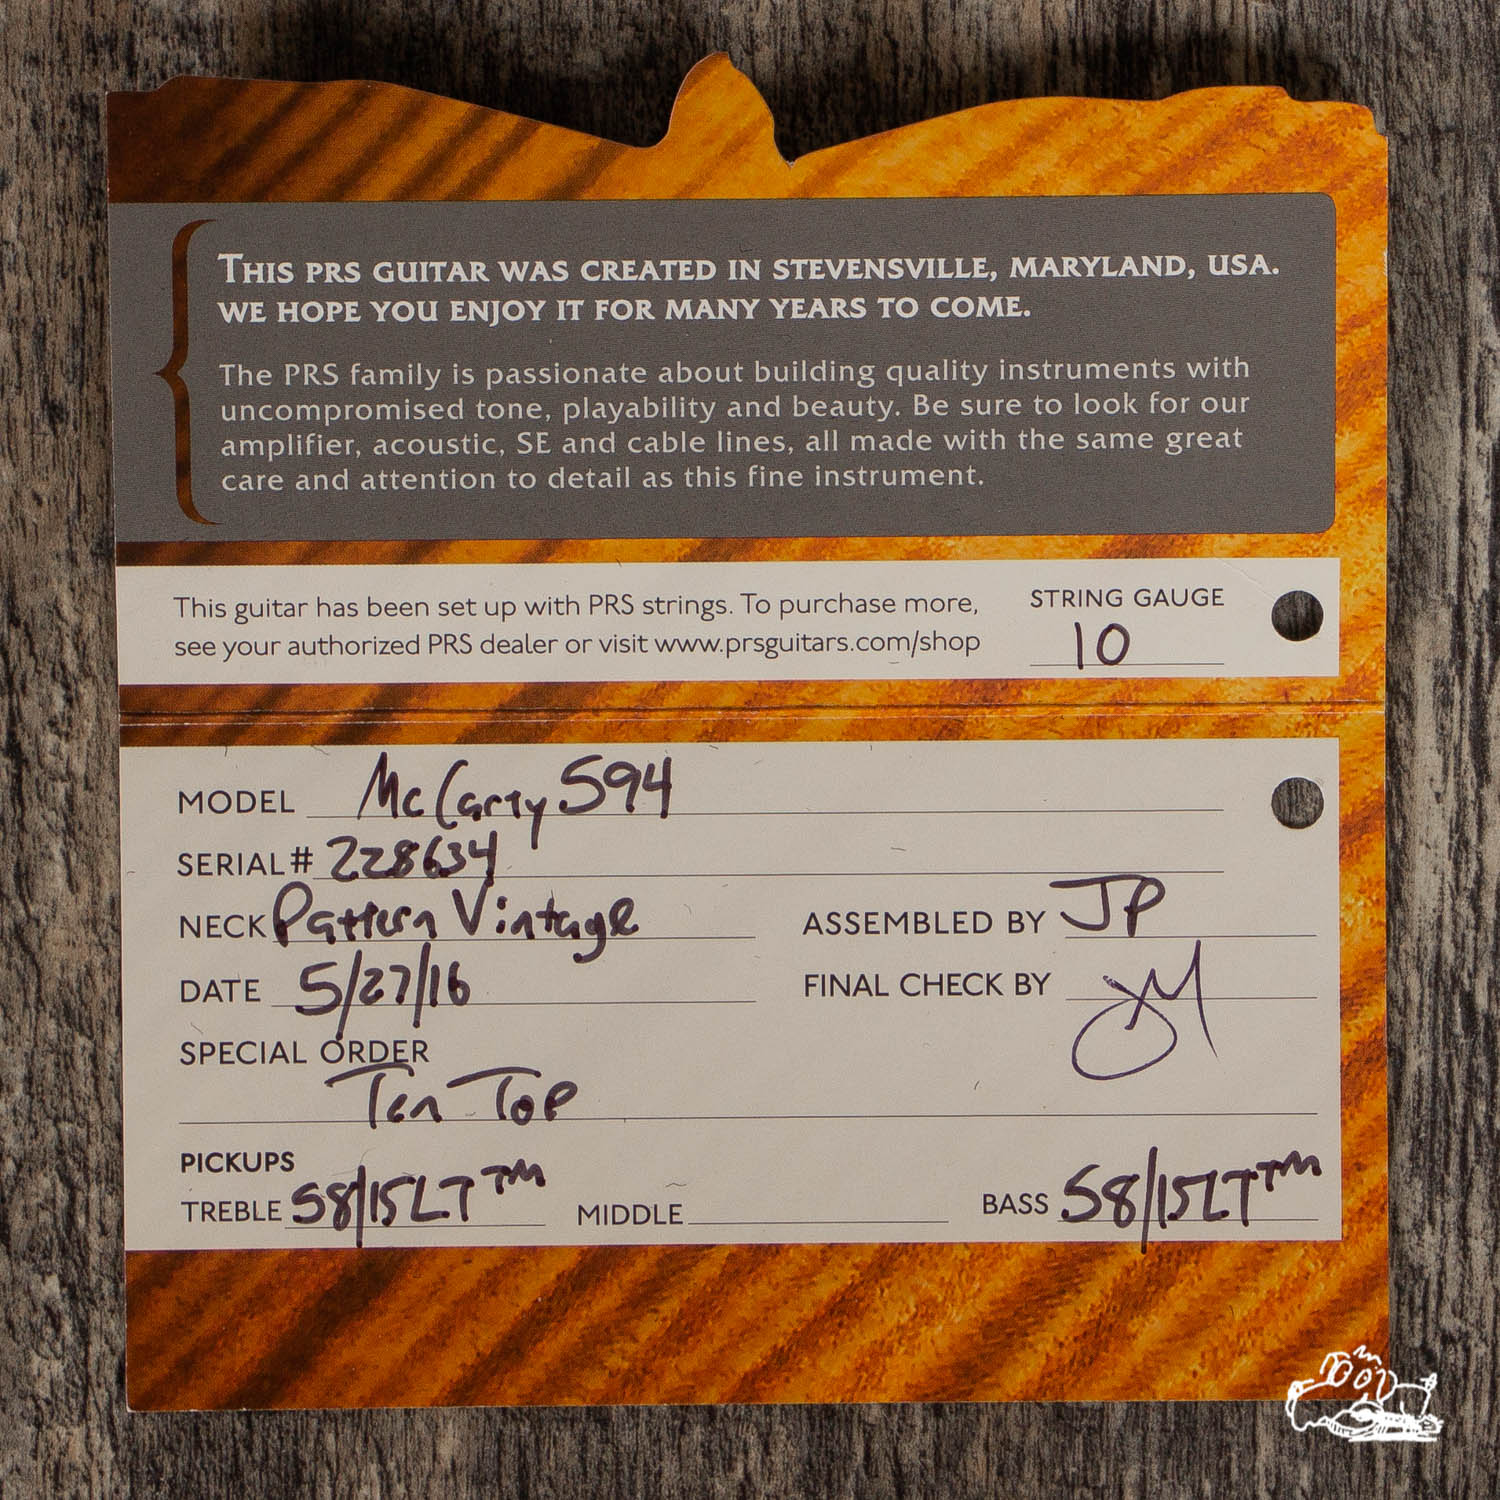 THIS PRS GUITAR WAS CREATED IN STEVENSVILLE, MARYLAND, USA.
WE HOPE YOU ENJOY IT FOR MANY YEARS TO COME.
The PRS family is passionate about building quality instruments with
uncompromised tone, playability and beauty. Be sure to look for our
amplifier, acoustic, SE and cable lines, all made with the same great
care and attention to detail as this fine instrument.
This guitar has been set up with PRS strings. To purchase more,
see your authorized PRS dealer or visit www.prsguitars.com/shop
STRING GAUGE
10
MODEL McCarty 594
SERIAL# 228634
NECK Pattern Vintage
ASSEMBLED BY JP
DATE 5/27/16
FINAL CHECK BY JM
SPECIAL ORDER
Ten Top
PICKUPS
TREBLE 58/15LT™ MIDDLE BASS 58/15LT™